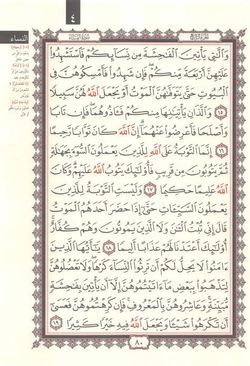 ٤
النساء
وَٱلَّٰتِي يَأْتِينَ ٱلْفَٰحِشَةَ مِن نِّسَآئِكُمْ فَٱسْتَشْهِدُوا۟
عَلَيْهِنَّ أَرْبَعَةً مِّنكُمْ ۖ فَإِن شَهِدُوا۟ فَأَمْسِكُوهُنَّ فِى
ٱلْبُيُوتِ حَتَّىٰ يَتَوَفَّىٰهُنَّ ٱلْمَوْتُ أَوْ يَجْعَلَ ٱللَّهُ لَهُنَّ سَبِيلًا
١٥ وَٱلَّذَانِ يَأْتِيَٰنِهَا مِنكُمْ فَـَٔاذُوهُمَا ۖ فَإِن تَابَا
وَأَصْلَحَا فَأَعْرِضُوا۟ عَنْهُمَآ ۗ إِنَّ ٱللَّهَ كَانَ تَوَّابًا رَّحِيمًا
١٦ إِنَّمَا ٱلتَّوْبَةُ عَلَى ٱللَّهِ لِلَّذِينَ يَعْمَلُونَ ٱلسُّوٓءَ بِجَهَٰلَةٍ
ثُمَّ يَتُوبُونَ مِن قَرِيبٍ فَأُو۟لَٰٓئِكَ يَتُوبُ ٱللَّهُ عَلَيْهِمْ ۗ وَكَانَ
ٱللَّهُ عَلِيمًا حَكِيمًا ١٧ وَلَيْسَتِ ٱلتَّوْبَةُ لِلَّذِينَ
يَعْمَلُونَ ٱلسَّيِّـَٔاتِ حَتَّىٰٓ إِذَا حَضَرَ أَحَدَهُمُ ٱلْمَوْتُ
قَالَ إِنِّى تُبْتُ ٱلْـَٰٔنَ وَلَا ٱلَّذِينَ يَمُوتُونَ وَهُمْ كُفَّارٌ ۚ
أُو۟لَٰٓئِكَ أَعْتَدْنَا لَهُمْ عَذَابًا أَلِيمًا ١٨ يَٰٓأَيُّهَا ٱلَّذِينَ
ءَامَنُوا۟ لَا يَحِلُّ لَكُمْ أَن تَرِثُوا۟ ٱلنِّسَآءَ كَرْهًا ۖ وَلَا تَعْضُلُوهُنَّ
لِتَذْهَبُوا۟ بِبَعْضِ مَآ ءَاتَيْتُمُوهُنَّ إِلَّآ أَن يَأْتِينَ بِفَٰحِشَةٍ
مُّبَيِّنَةٍ ۚ وَعَاشِرُوهُنَّ بِٱلْمَعْرُوفِ ۚ فَإِن كَرِهْتُمُوهُنَّ فَعَسَىٰٓ
أَن تَكْرَهُوا۟ شَيْـًٔا وَيَجْعَلَ ٱللَّهُ فِيهِ خَيْرًا كَثِيرًا ١٩
٨٠